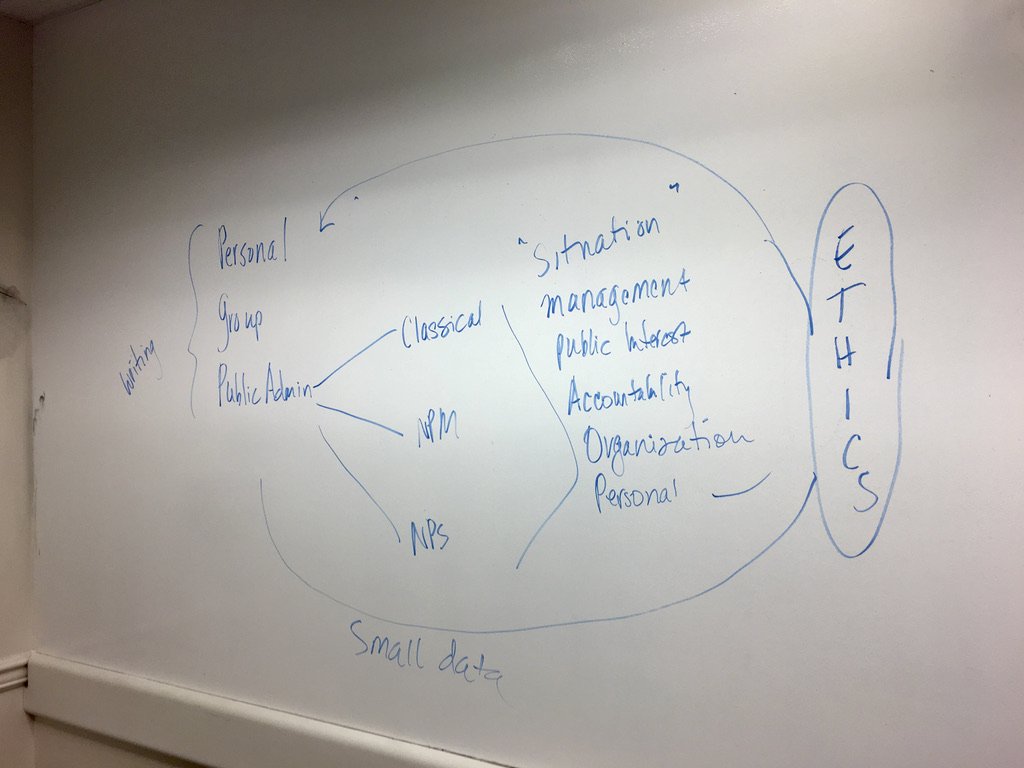 Writing
Personal
Group
Public Admin
Classical
NPM
NPS
"Situation"
management
public Interest
Accountability
Organization
Personal
ETHICS
Small data